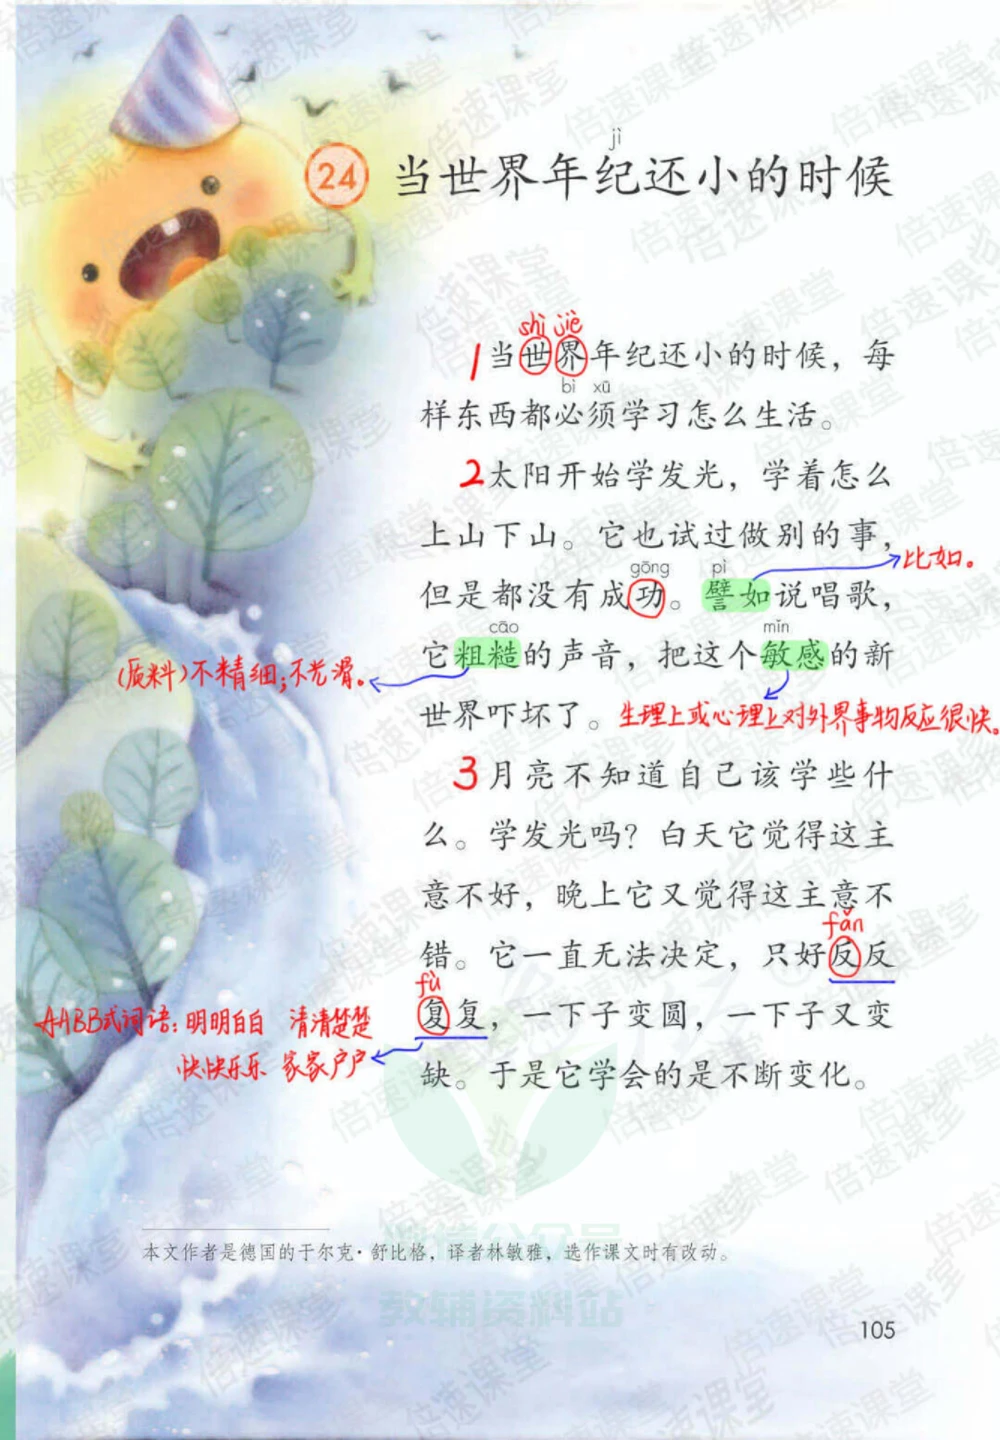 jì
24 当世界年纪还小的时候
shì jiè
1当世界年纪还小的时候，每
bì xū
样东西都必须学习怎么生活。
2太阳开始学发光，学着怎么
上山下山。它也试过做别的事，
比如。
gōng pì
但是都没有成功。譬如说唱歌，
cāo mǐn
它粗糙的声音，把这个敏感的新
(质料)不精细;不光滑。
世界吓坏了。
生理上或心理上对外界事物反应很快。
3月亮不知道自己该学些什
么。学发光吗？白天它觉得这主
意不好，晚上它又觉得这主意不
fǎn
错。它一直无法决定，只好反反
fù
复复，一下子变圆，一下子又变
AABB式词语:明明白白 清清楚楚
快快乐乐 家家户户
缺。于是它学会的是不断变化。
微信公众号
本文作者是德国的于尔克·舒比格，译者林敏雅，选作课文时有改动。
教辅资料站
105
倍速课堂